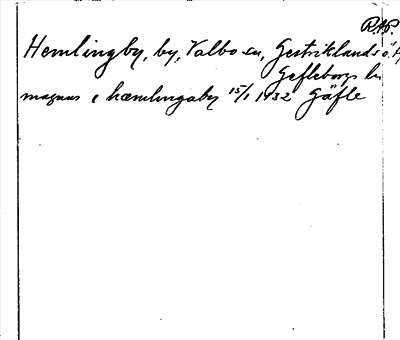 R.A.P.
Hemlingby, by, Valbo sn, Gestriklands ö.
Gefleborgs län
magnus i hæmlingaby 15/1 1432 Gäfle